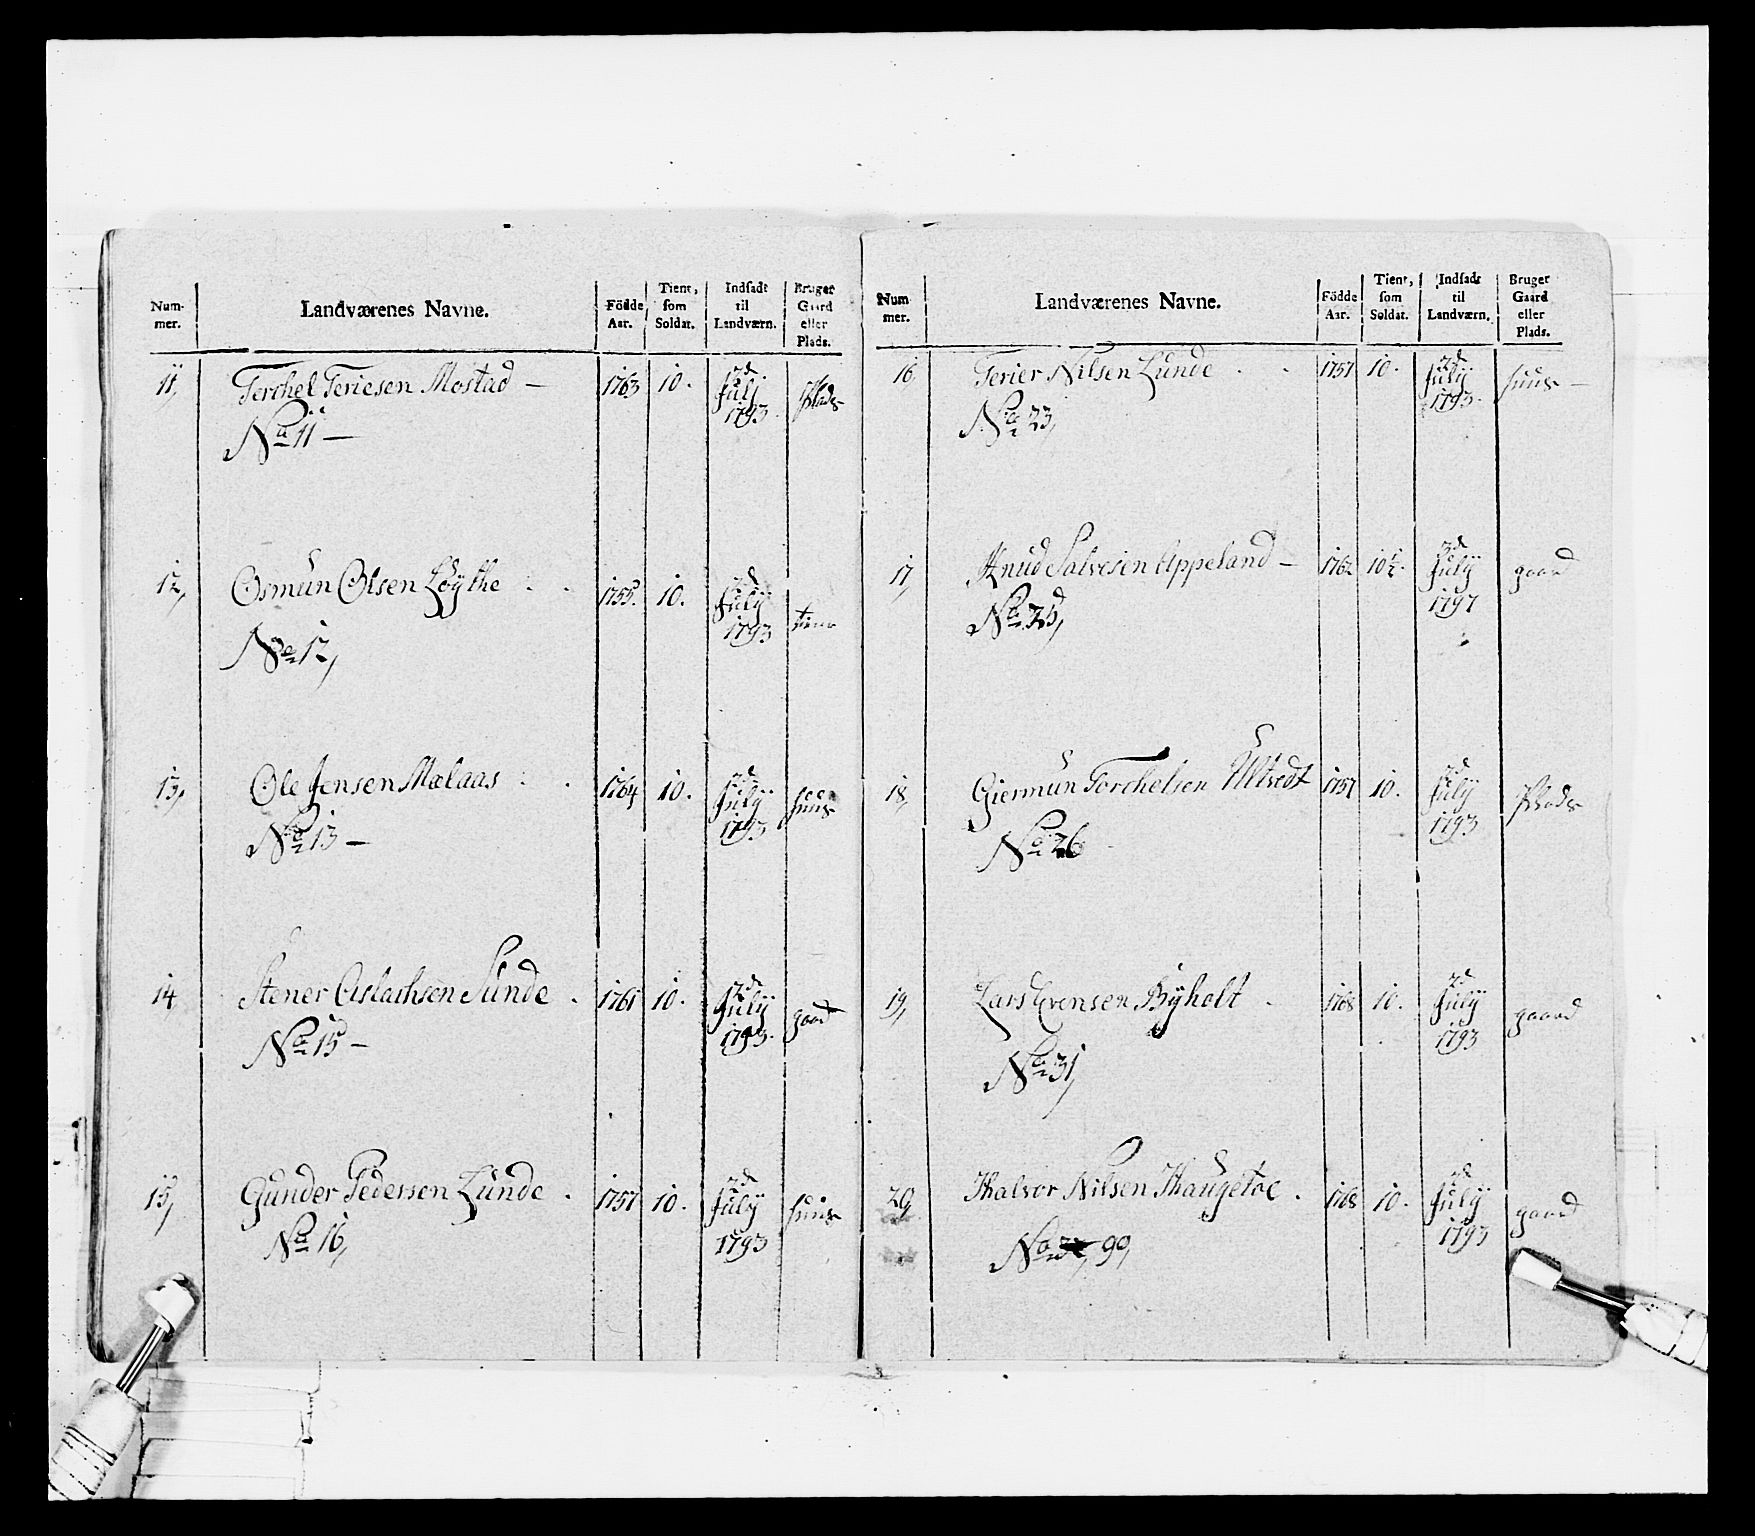 Num-
mer.
Landværenes Navne.
Födde
Aar.
Tient,
som
Soldat.
Indsadt
til
Landværn.
Bruger
Gaard
eller
Plads.
11, Terchel Teriesen Mostad — 1763 10. 2d July 1793. Plads
No 11 —
12, Osmun Olsen Løythe . . 1755. 10. 2d July 1793 tiene
No 12,
13, Ole Jensen Mælaas . . 1764 10. 2d July 1793 huus
No 13 —
14 Stener Aslachsen Sunde . 1761 10. 2d July 1793. gaard
No 15 —
15, Gunder Pedersen Lunde . 1757 10. 2d July 1793 huus
No 16,
Num
mer.
Landværenes Navne.
Födde
Aar.
Tient,
som
Soldat.
Indsadt
til
Landværn.
Bruger
Gaard
eller
Plads.
16 Terier Nilsen Lunde . . 1757 10. 2d July 1793. huus —
No 23,
17, Knud Salvesen Uppeland — 1762 10½. 2d July 1797 gaard
No 25,
18, Giermun Torchelsen Ultvedt 1757 10. 2d July 1793 Plads
No 26
19, Lars Evensen Byholt . 1768 10. 2d July 1793 gaard
No 31,
20, Halvor Nilsen Haugetoe . 1768 10. 2d July 1793 gaard
No 99,